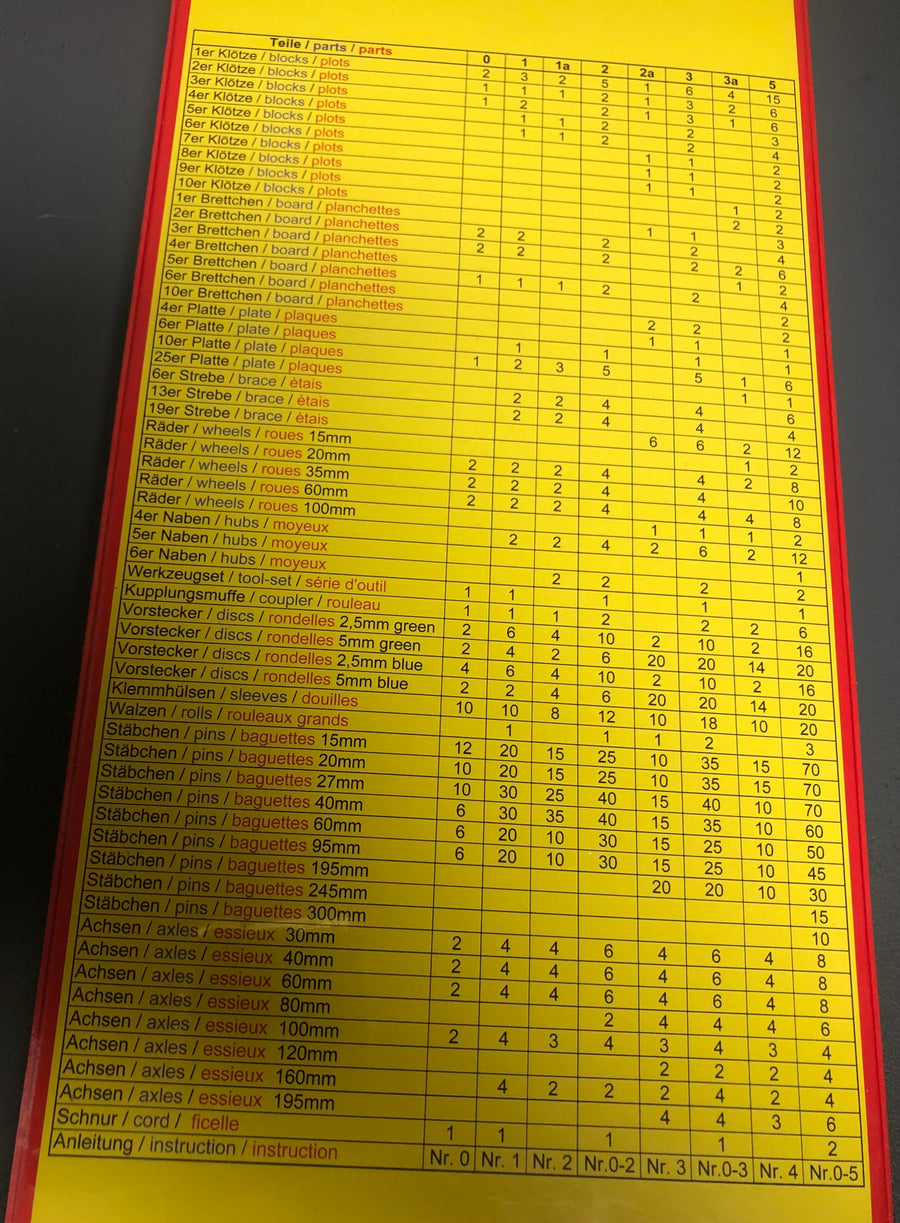 Teile / parts / parts 0 1 1a 2 2a 3 3a 5
1er Klötze / blocks / plots 2 3 2 5 1 6 4 15
2er Klötze / blocks / plots 1 1 1 2 1 3 2 6
3er Klötze / blocks / plots 1 2 2 1 3 1 6
4er Klötze / blocks / plots 1 1 2 2 3
5er Klötze / blocks / plots 1 1 2 2 4
6er Klötze / blocks / plots 1 1 2
7er Klötze / blocks / plots 2
8er Klötze / blocks / plots 1 1 2
9er Klötze / blocks / plots 1 2
10er Klötze / blocks / plots 2 2
1er Brettchen / board / planchettes 1 1 3
2er Brettchen / board / planchettes 2 2 2 2 4
3er Brettchen / board / planchettes 2 2 2 2 2 6
4er Brettchen / board / planchettes 1 2
5er Brettchen / board / planchettes 1 1 1 2 2 4
6er Brettchen / board / planchettes 2
10er Brettchen / board / planchettes 2 2 2
4er Platte / plate / plaques 1 1 1
6er Platte / plate / plaques 1 1 1 1
10er Platte / plate / plaques 1 2 3 5 5 1 6
25er Platte / plate / plaques 1 1
6er Strebe / brace / ètais 2 2 4 4 6
13er Strebe / brace / ètais 2 2 4 4 4
19er Strebe / brace / ètais 6 6 2 12
Räder / wheels / roues 15mm 1 2
Räder / wheels / roues 20mm 2 2 2 4 4 2 8
Räder / wheels / roues 35mm 2 2 2 4 4 10
Räder / wheels / roues 60mm 2 2 2 4 4 4 8
Räder / wheels / roues 100mm 1 1 1 2
4er Naben / hubs / moyeux 2 2 4 2 6 2 12
5er Naben / hubs / moyeux 1
6er Naben / hubs / moyeux 2 2 2 2
Werkzeugset / tool-set / série d'outil 1 1 1 1 1
Kupplungsmuffe / coupler / rouleau 1 1 1 2 2 2 6
Vorstecker / discs / rondelles 2,5mm green 2 6 4 10 2 10 2 16
Vorstecker / discs / rondelles 5mm green 2 4 2 6 20 20 14 20
Vorstecker / discs / rondelles 2,5mm blue 4 6 4 10 2 10 2 16
Vorstecker / discs / rondelles 5mm blue 2 2 4 6 20 20 14 20
Klemmhülsen / sleeves / douilles 10 10 8 12 10 18 10 20
Walzen / rolls / rouleaux grands 1 1 1 2 3
Stäbchen / pins / baguettes 15mm 12 20 15 25 10 35 15 70
Stäbchen / pins / baguettes 20mm 10 20 15 25 10 35 15 70
Stäbchen / pins / baguettes 27mm 10 30 25 40 15 40 10 70
Stäbchen / pins / baguettes 40mm 6 30 35 40 15 35 10 60
Stäbchen / pins / baguettes 60mm 6 20 10 30 15 25 10 50
Stäbchen / pins / baguettes 95mm 6 20 10 30 15 25 10 45
Stäbchen / pins / baguettes 195mm 20 20 10 30
Stäbchen / pins / baguettes 245mm 15
Stäbchen / pins / baguettes 300mm 10
Achsen / axles / essieux 30mm 2 4 4 6 4 6 4 8
Achsen / axles / essieux 40mm 2 4 4 6 4 6 4 8
Achsen / axles / essieux 60mm 2 4 4 6 4 6 4 8
Achsen / axles / essieux 80mm 2 4 4 4 6
Achsen / axles / essieux 100mm 2 4 3 4 3 4 3 4
Achsen / axles / essieux 120mm 2 2 2 4
Achsen / axles / essieux 160mm 4 2 2 2 4 2 4
Achsen / axles / essieux 195mm 4 4 3 6
Schnur / cord / ficelle 1 1 1 1 2
Anleitung / instruction / instruction Nr. 0 Nr. 1 Nr. 2 Nr.0-2 Nr. 3 Nr.0-3 Nr. 4 Nr.0-5